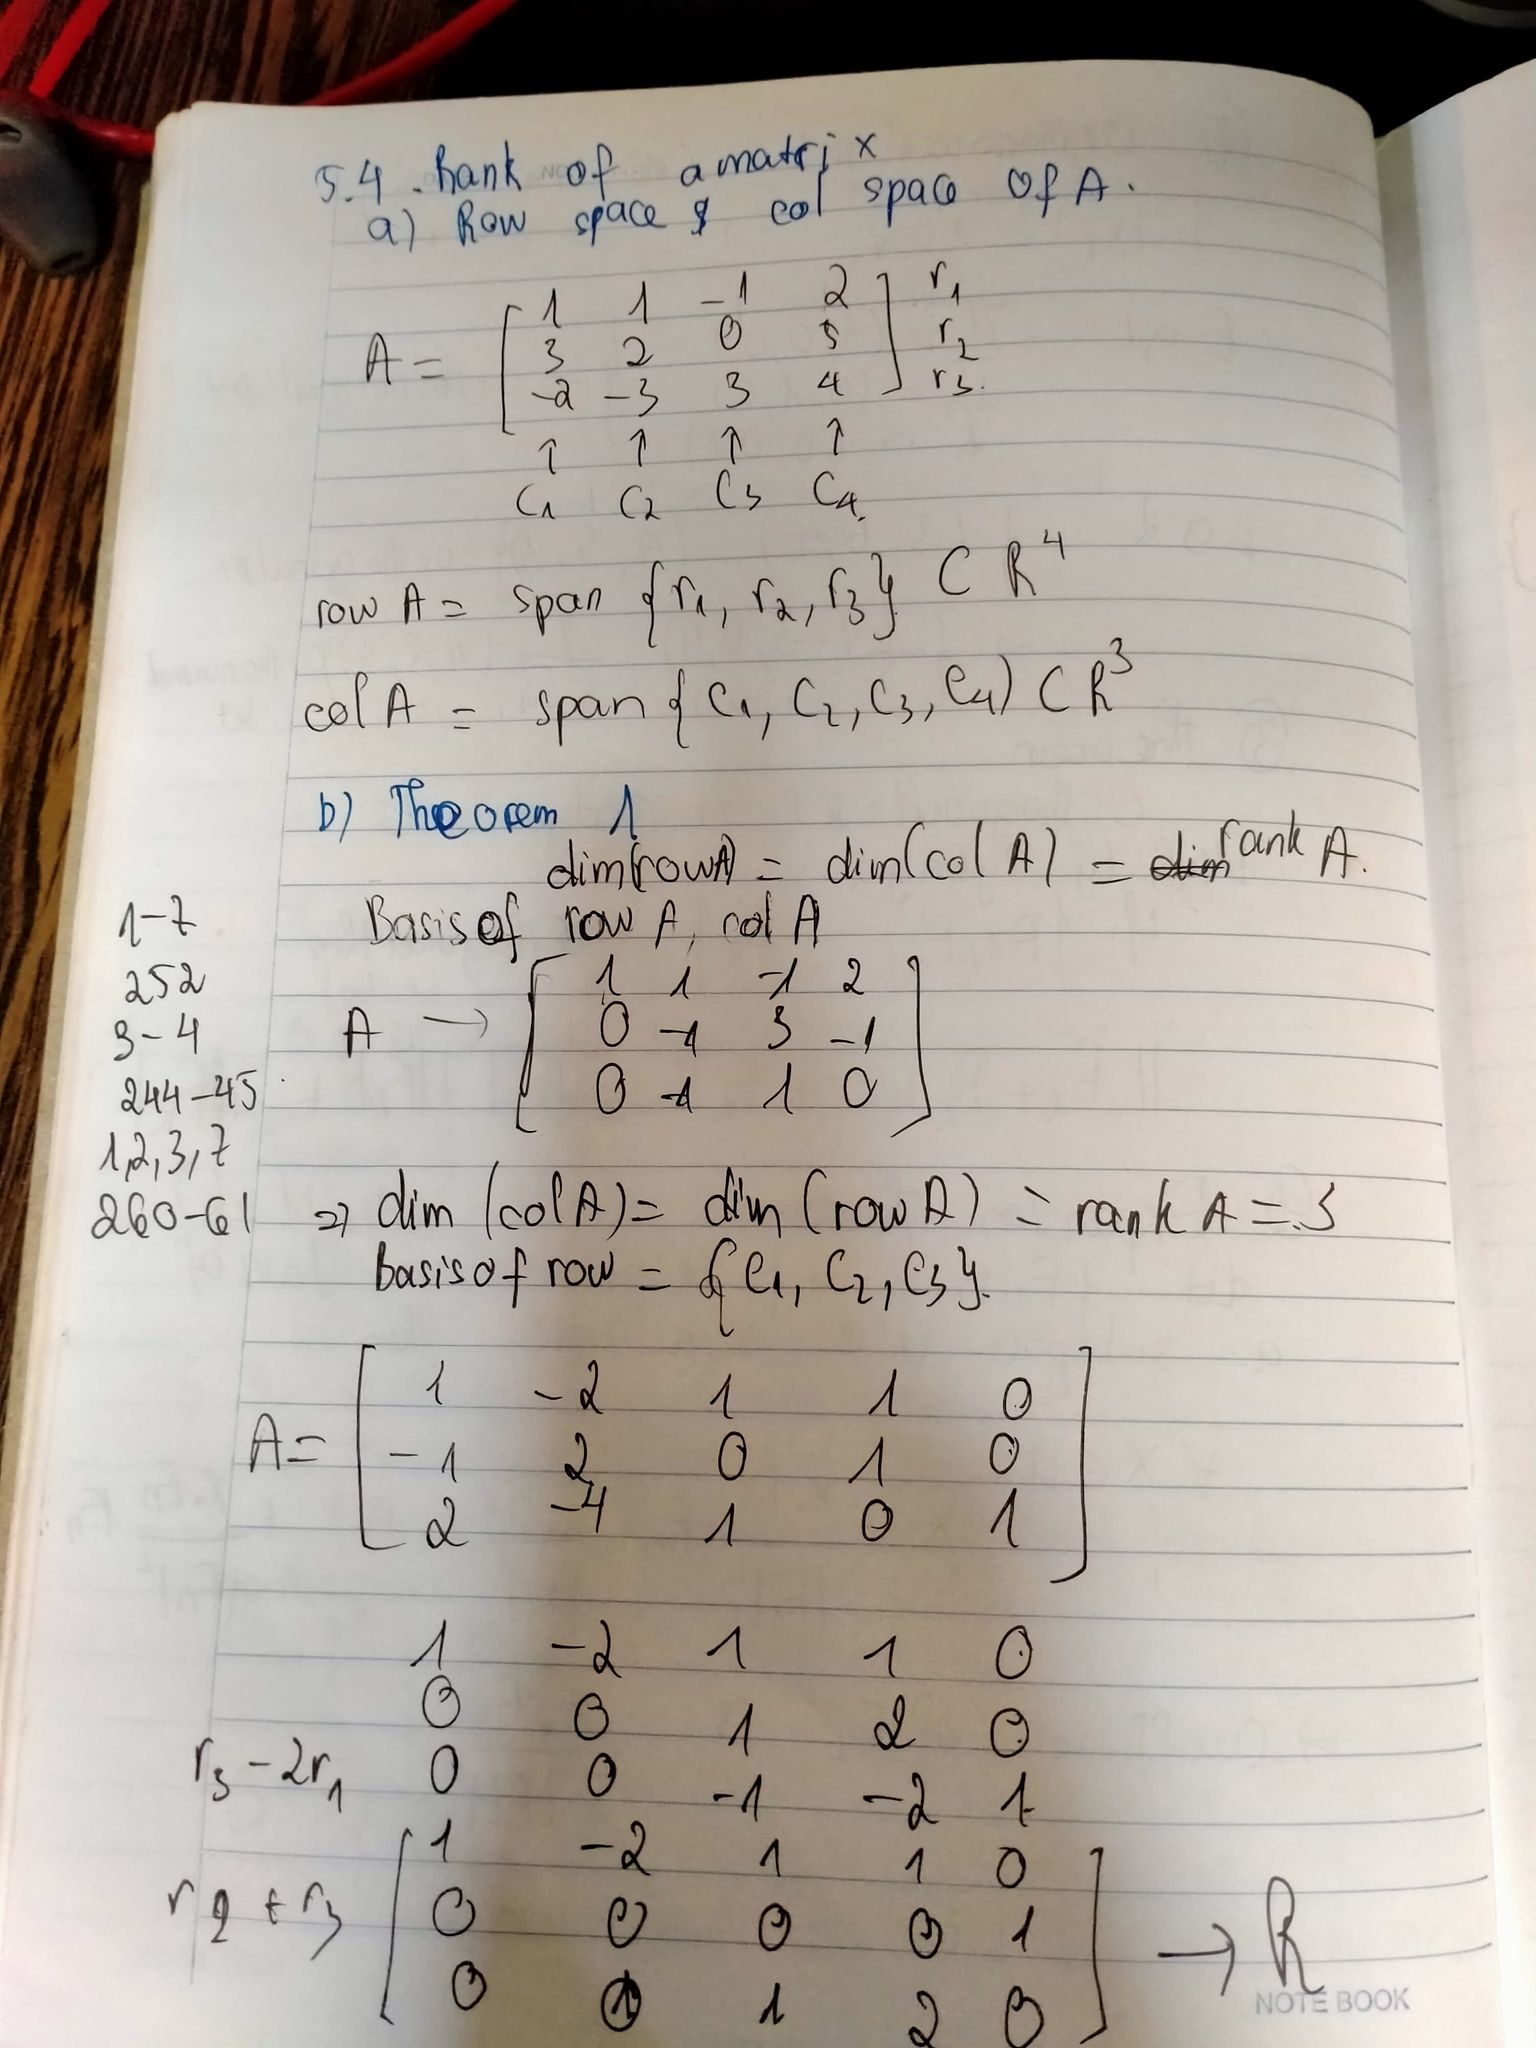 5.4. Rank of a matrix
a) Row space & col space of A.
1 1 -1 2 r1
A = 3 2 0 5 r2
-2 -3 3 4 r3.
↑ ↑ ↑ ↑
C1 C2 C3 C4.
row A = span {r1, r2, r3} ⊂ R^4
col A = span {C1, C2, C3, C4) ⊂ R^3
b) Theorem 1
dim(row A) = dim(col A) = dim rank A.
Basis of row A, col A
1 1 -1 2
A → 0 -1 3 -1
0 -1 1 0
1-7
252
3-4
244-45
1,2,3,7
260-61
=> dim (col A) = dim (row A) = rank A = 3
basis of row = {C1, C2, C3}.
1 -2 1 1 0
A = -1 2 0 1 0
2 -4 1 0 1
1 -2 1 1 0
0 0 1 2 0
r3 - 2r1 0 0 -1 -2 1
1 -2 1 1 0
r2 + r3 0 0 0 0 1 → R
0 0 1 2 0
NOTE BOOK